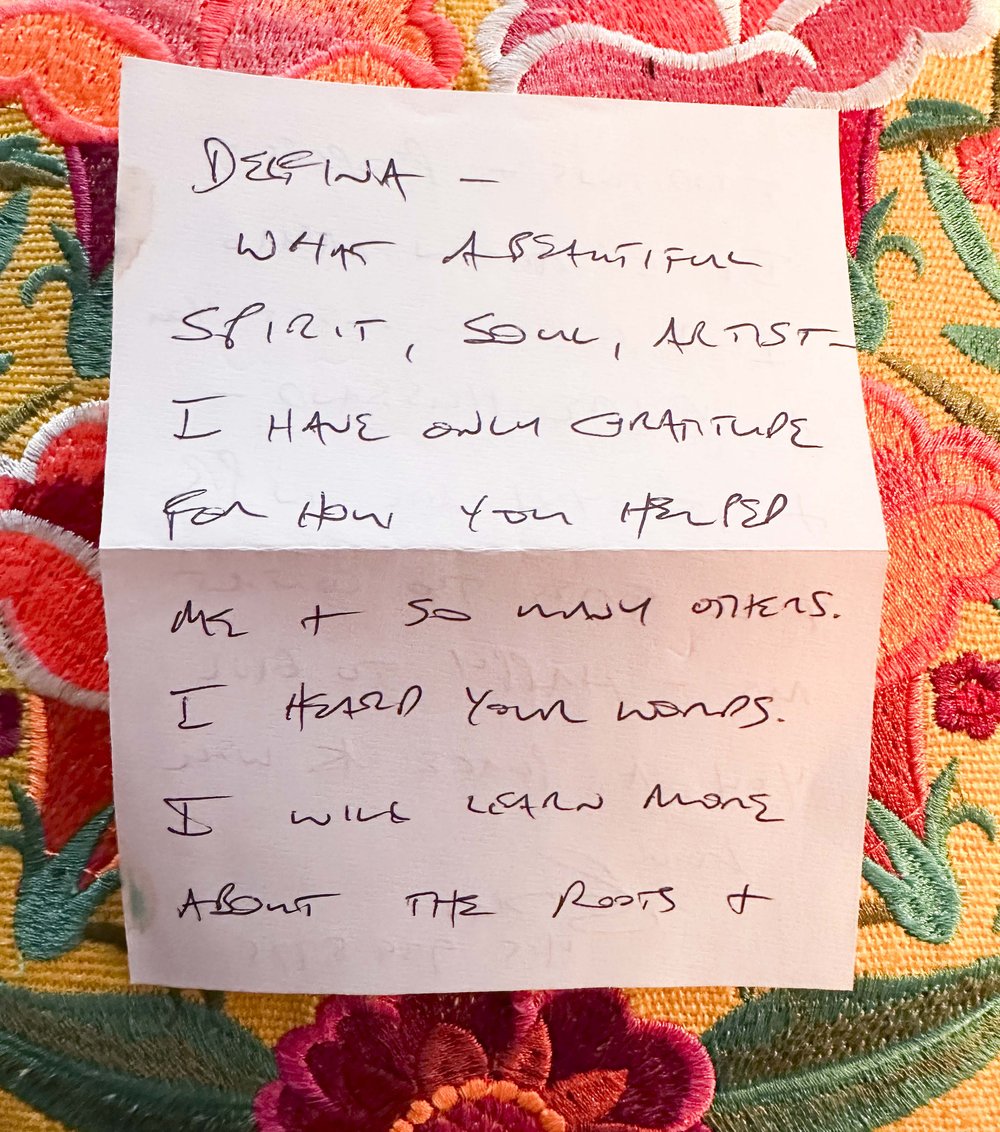 DELFINA —
WHAT A BEAUTIFUL
SPIRIT, SOUL, ARTIST—
I HAVE ONLY GRATITUDE
FOR HOW YOU HELPED
ME + SO MANY OTHERS.
I HEARD YOUR WORDS.
I WILL LEARN MORE
ABOUT THE ROOTS +